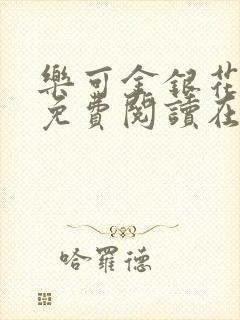 樂可金銀花
免費閱讀在
哈羅德